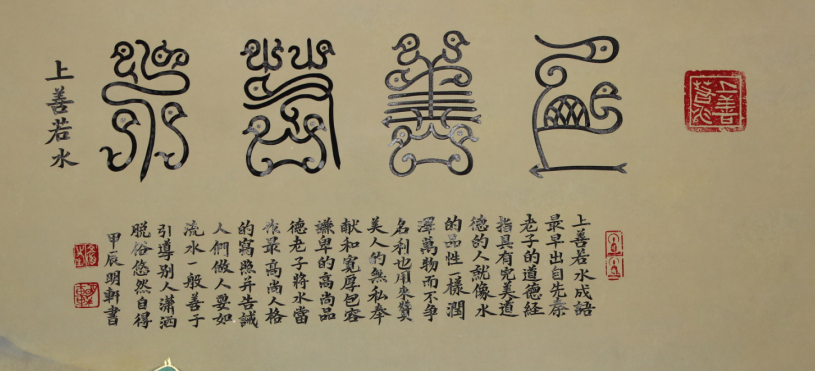 上善若水
上善若水
上善若水
上善若水成語
最早出自先秦
老子的道德經
指具有完美道
德的人就像水
的品性一樣潤
澤萬物而不争
名利也用來贊
美人的無私奉
献和寬厚包容
謙卑的高尚品
德老子將水當
作最高尚人格
的寫照并告誡
人們做人要如
流水一般善于
引導别人瀟洒
脱俗悠然自得
甲辰明軒書